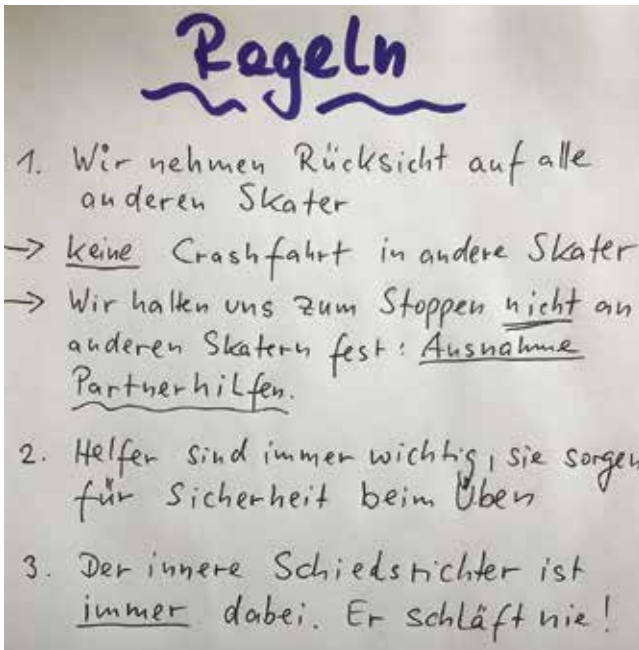 Regeln
1. Wir nehmen Rücksicht auf alle
anderen Skater
→ keine Crashfahrt in andere Skater
→ Wir halten uns zum Stoppen nicht an
anderen Skatern fest: Ausnahme
Partnerhilfen.
2. Helfer sind immer wichtig, sie sorgen
für Sicherheit beim Üben
3. Der innere Schiedsrichter ist
immer dabei. Er schläft nie!